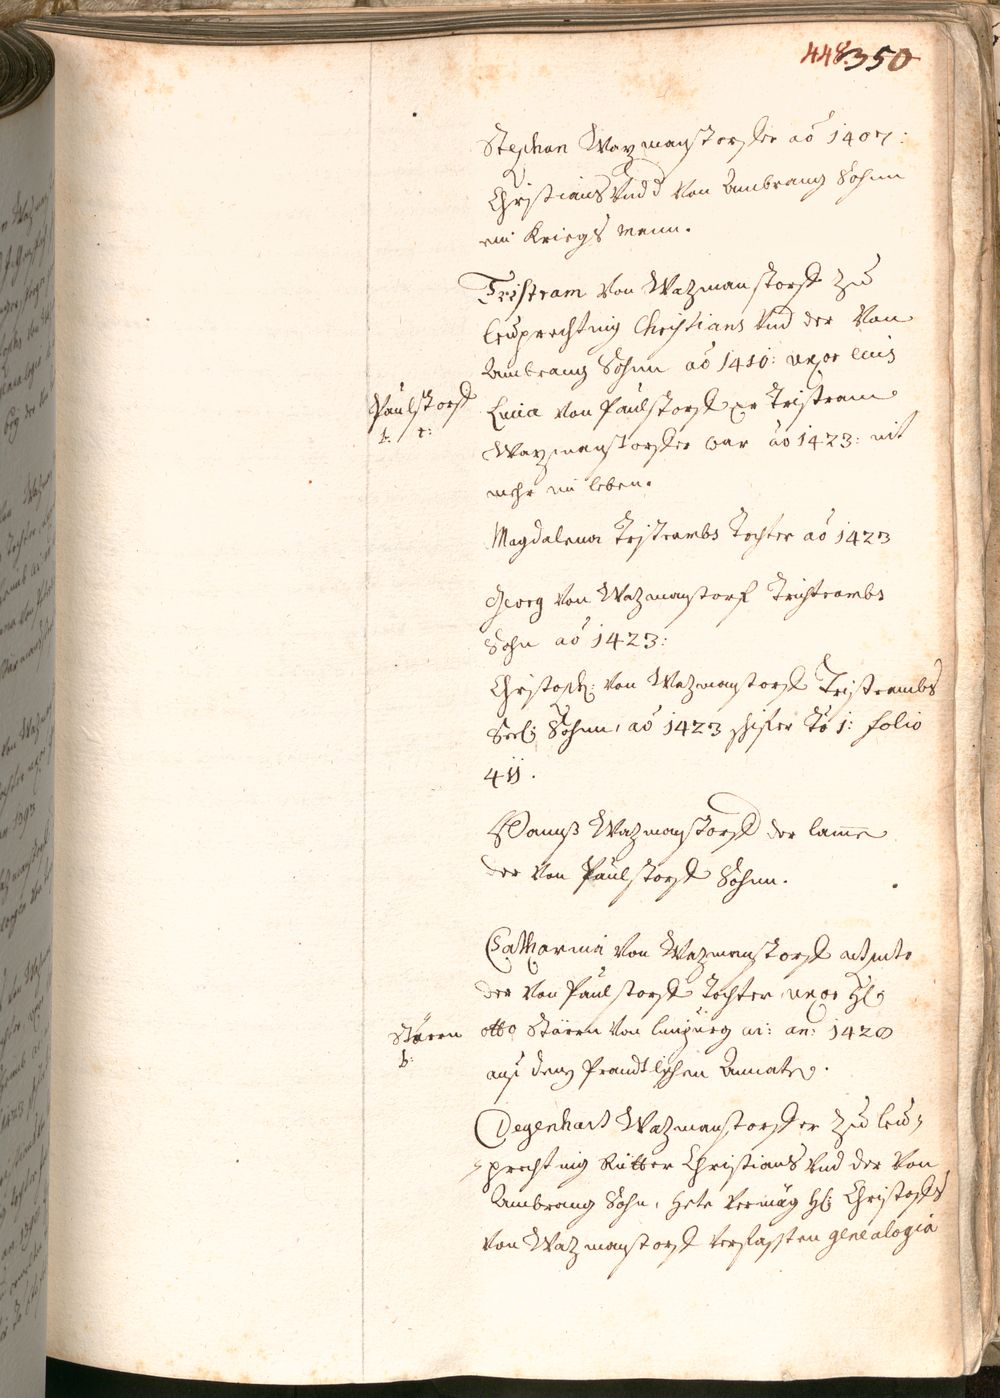 448 350
Stephan Wazmanstorffer aö 1407:
Christians Vnd d Von Ambrang Sohnn
ein Kriegs mann.
Tristram Von Wazmanstorff Zu
leuprechting Christians Vnd der Von
Ambrang Sohnn aö 1410: uxor eius
Paulstorff
Lucia Von Paulstorff er Tristram
Wazmanstorffer war aö 1423: nit
mehr im leben.
Magdalena Tristrambs Tochter aö 1423
Georg Von Wazmanstorff Trichtrambs
Sohn aö 1423:
Christoph: Von Wazmanstorff Tristrambs
Seel: Sohnn, aö 1423 To: 1: folio
411.
Hannß Wazmanstorff der lamme
der Von Paulstorff Sohnn.
Catharina Von Wazmanstorff
der Von Paulstorff Tochter uxor H:
Stären
otto Stären Von ai: an: 1420
auß dem Prandtlischen
Degenhart Wazmanstorffer Zu leu=
=prechting Ritter Christians Vnd der Von
Ambrang Sohn, hete Vermög H: Christophs
Von Wazmanstorff Verfassten genealogia